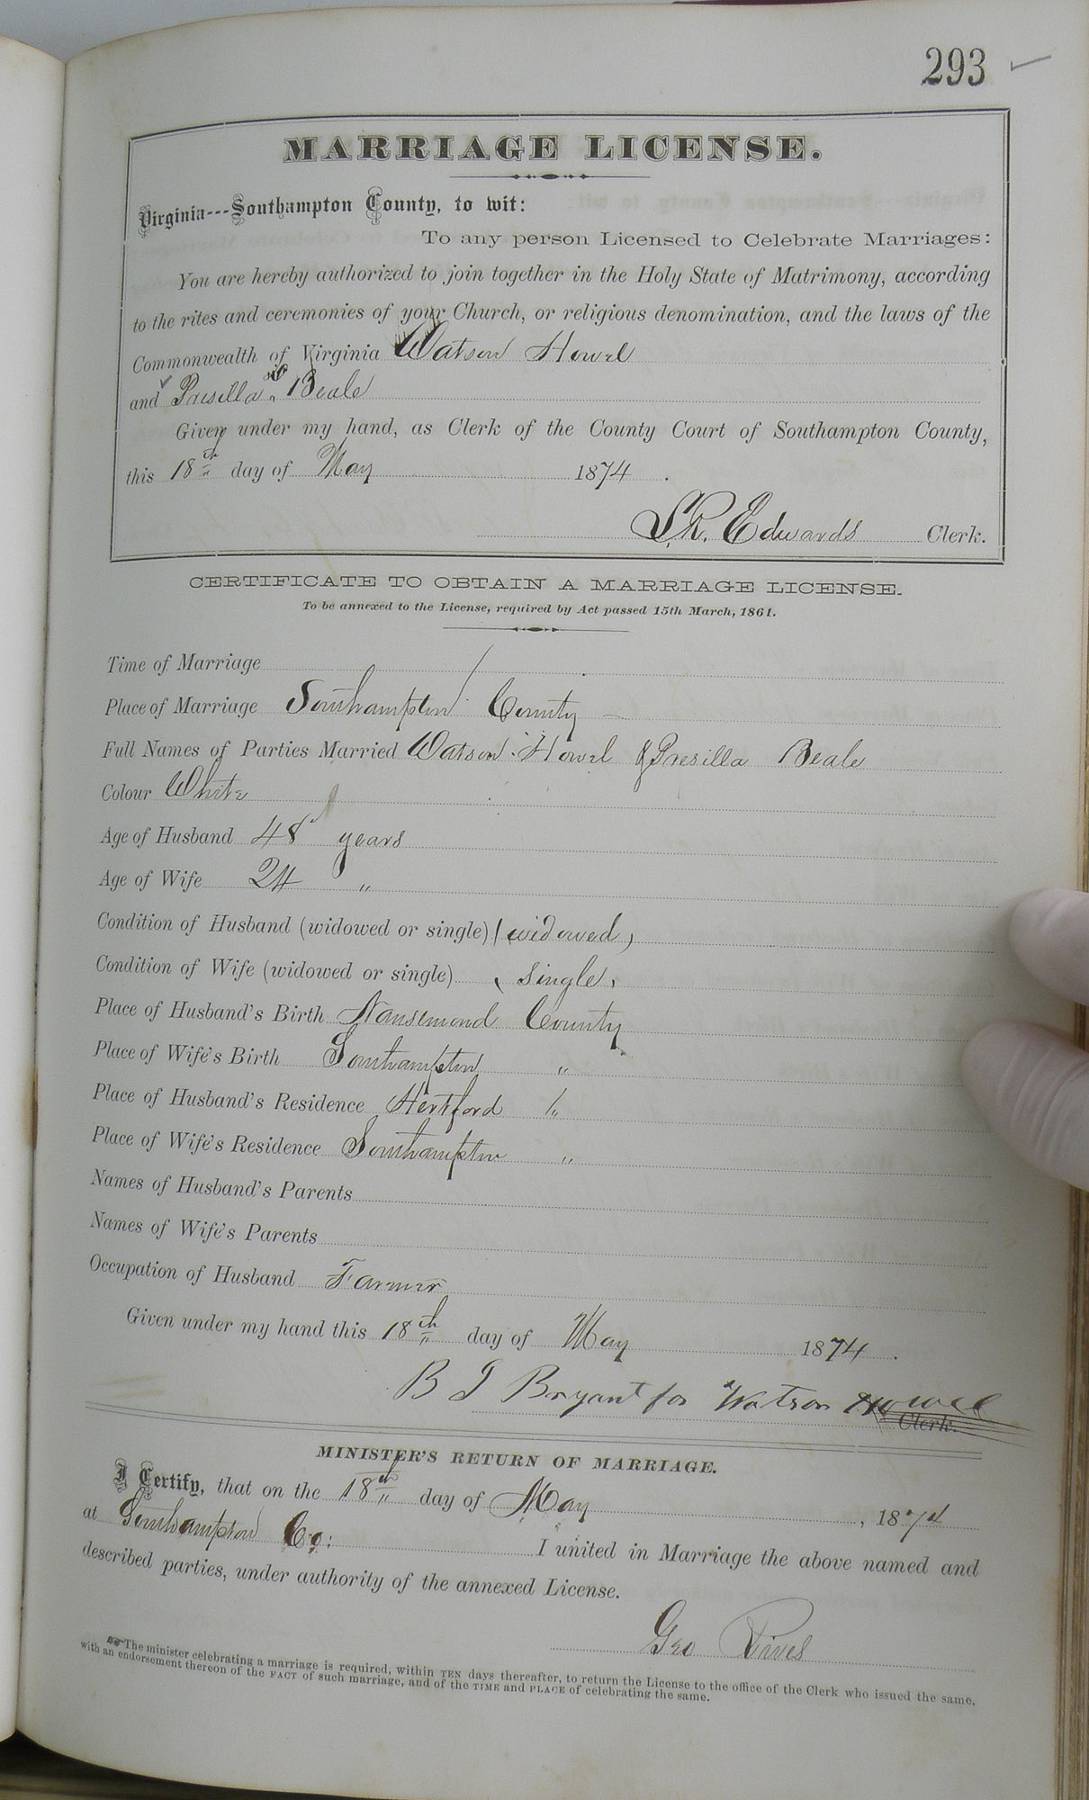 293
MARRIAGE LICENSE.
Virginia---Southampton County, to wit:
To any person Licensed to Celebrate Marriages:
You are hereby authorized to join together in the Holy State of Matrimony, according
to the rites and ceremonies of your Church, or religious denomination, and the laws of the
Commonwealth of Virginia Watson Howel
and Presilla Beale
Given under my hand, as Clerk of the County Court of Southampton County,
this 18th day of May 1874.
L.R. Edwards Clerk.
CERTIFICATE TO OBTAIN A MARRIAGE LICENSE.
To be annexed to the License, required by Act passed 15th March, 1861.
Time of Marriage
Place of Marriage Southampton County
Full Names of Parties Married Watson Howel & Presilla Beale
Colour White
Age of Husband 48 years
Age of Wife 24 "
Condition of Husband (widowed or single) (widowed)
Condition of Wife (widowed or single) single
Place of Husband's Birth Nansemond County
Place of Wife's Birth Southampton "
Place of Husband's Residence Hertford "
Place of Wife's Residence Southampton "
Names of Husband's Parents
Names of Wife's Parents
Occupation of Husband Farmer
Given under my hand this 18th day of May 1874.
B J Bryant for Watson Howell
Clerk.
MINISTER'S RETURN OF MARRIAGE.
I Certify, that on the 18th day of May, 1874
at Southampton Co: I united in Marriage the above named and
described parties, under authority of the annexed License.
Geo Rives
The minister celebrating a marriage is required, within TEN days thereafter, to return the License to the office of the Clerk who issued the same,
with an endorsement thereon of the FACT of such marriage, and of the TIME and PLACE of celebrating the same.